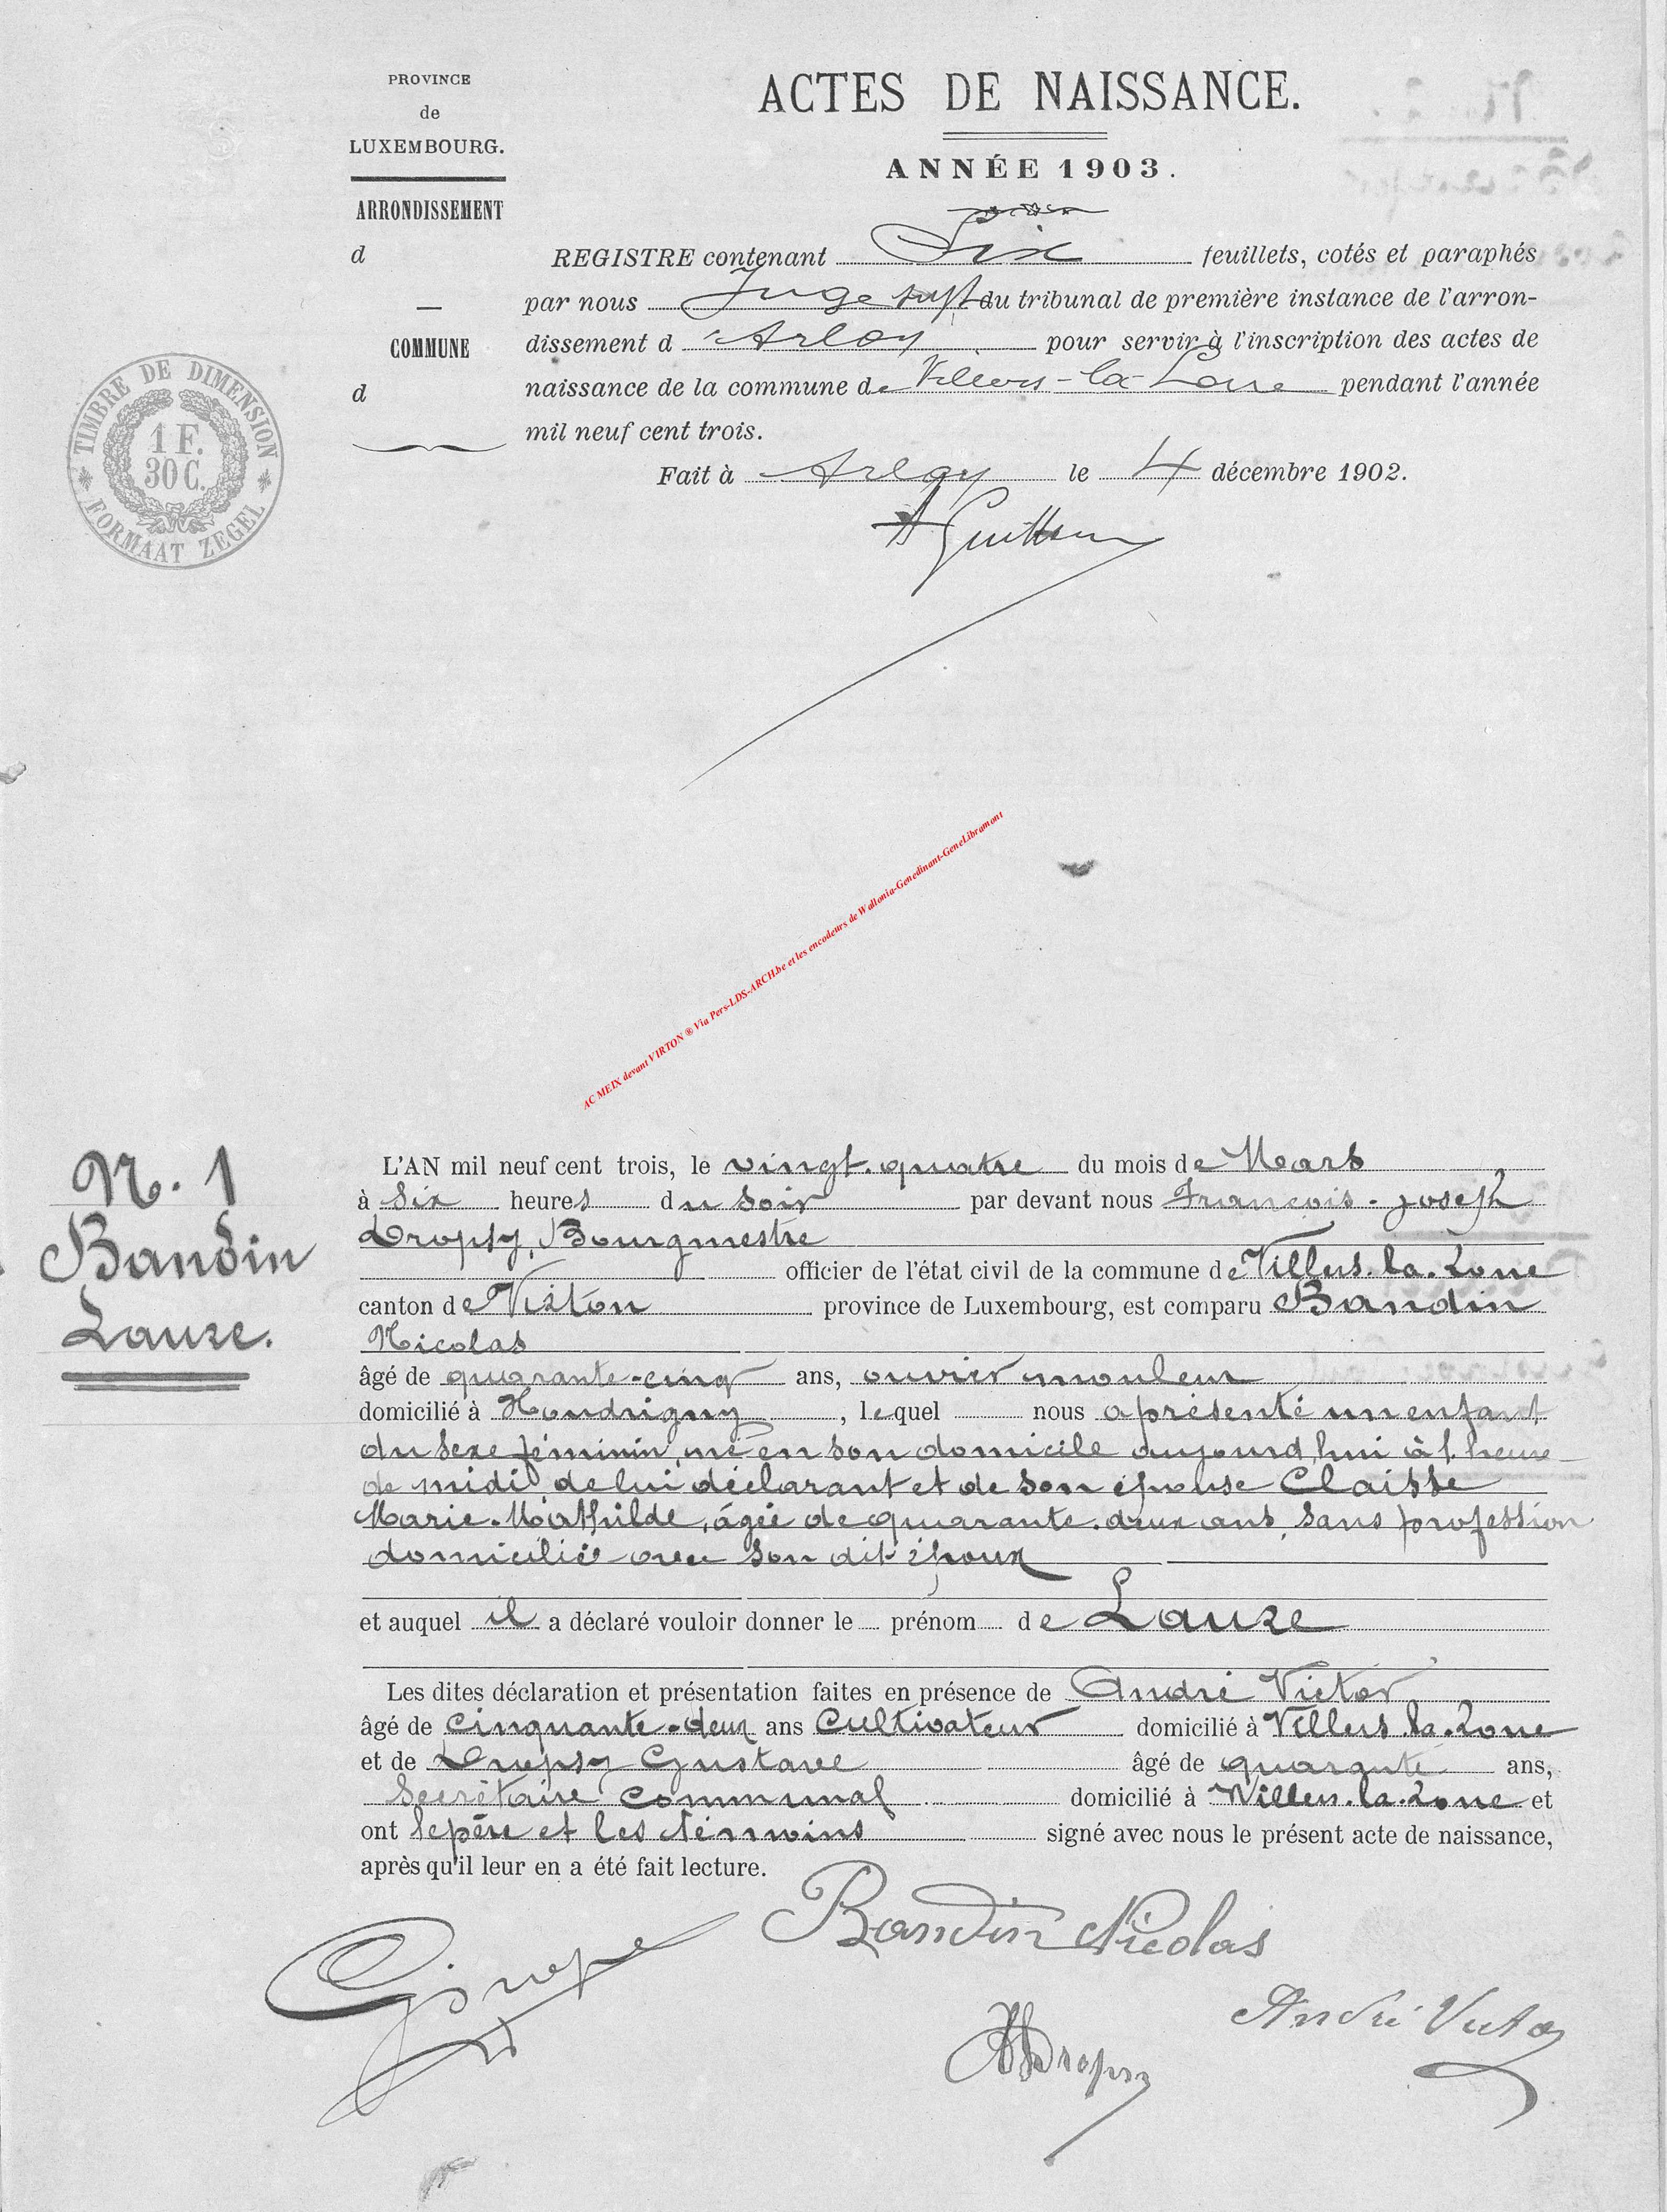 PROVINCE
de
LUXEMBOURG.
ARRONDISSEMENT
d
COMMUNE
d
TIMBRE DE DIMENSION
1 F.
30 C.
FORMAAT ZEGEL
ACTES DE NAISSANCE.
ANNÉE 1903.
REGISTRE contenant Six feuillets, cotés et paraphés
par nous Juge supt du tribunal de première instance de l'arron-
dissement d'Arlon pour servir à l'inscription des actes de
naissance de la commune de Villers-la-Loue pendant l'année
mil neuf cent trois.
Fait à Arlon le 4 décembre 1902.
AC MEIX devant VIRTON ® Via Pers-LDS-ARCH.be et les encodeurs de Wallonia-Genedinant-GeneLibramont
N. 1
Baudin
Laure.
L'AN mil neuf cent trois, le vingt-quatre du mois de Mars
à Six heures du soir par devant nous François-Joseph
Dropsy, Bourgmestre
officier de l'état civil de la commune de Villers-la-Loue
canton de Virton province de Luxembourg, est comparu Baudin
Nicolas
âgé de quarante-cinq ans, ouvrier mouleur
domicilié à Houdrigny, lequel nous a présenté un enfant
du sexe féminin, né en son domicile aujourd'hui à 1 heure
de midi de lui déclarant et de son épouse Claisse
Marie-Mathilde, âgée de quarante-deux ans, sans profession
domiciliée avec son dit époux
et auquel il a déclaré vouloir donner le prénom de Laure
Les dites déclaration et présentation faites en présence de André Victor
âgé de cinquante-deux ans Cultivateur domicilié à Villers-la-Loue
et de Dropsy Gustave âgé de quarante ans,
Secrétaire communal domicilié à Villers-la-Loue et
ont le père et les témoins signé avec nous le présent acte de naissance,
après qu'il leur en a été fait lecture.
Baudin Nicolas
André Victor
Dropsy